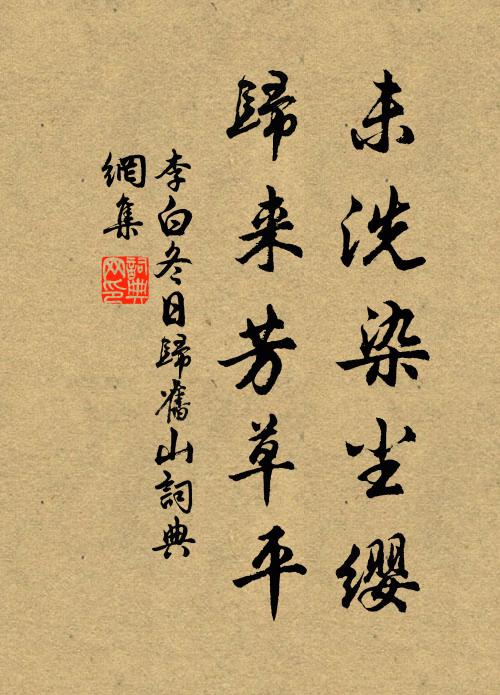 未洗染尘缨
歸来芳草平
李白冬日歸舊山詞典
網集
詞典
网印